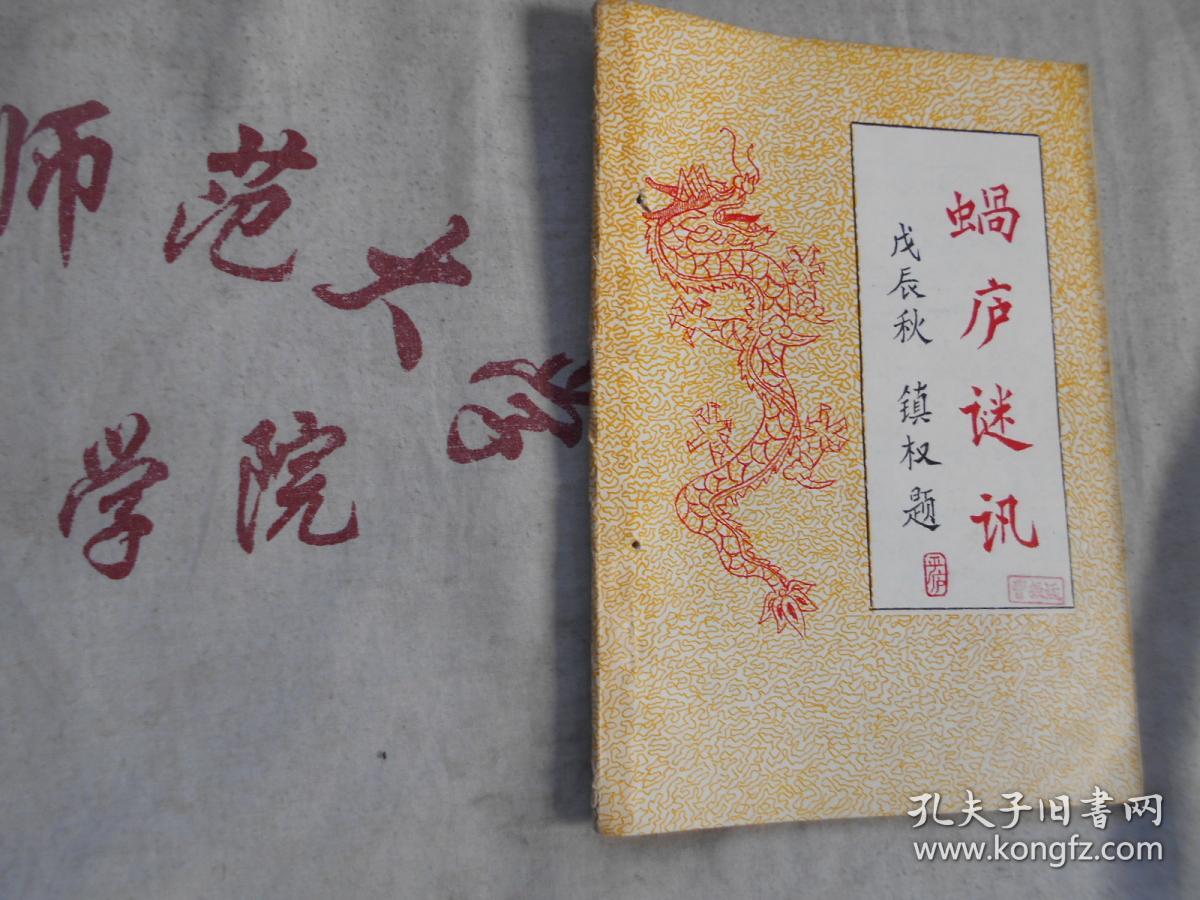 师范大学
学院
蝸庐谜讯
戊辰秋 镇权题
孔夫子旧书网
www.kongfz.com